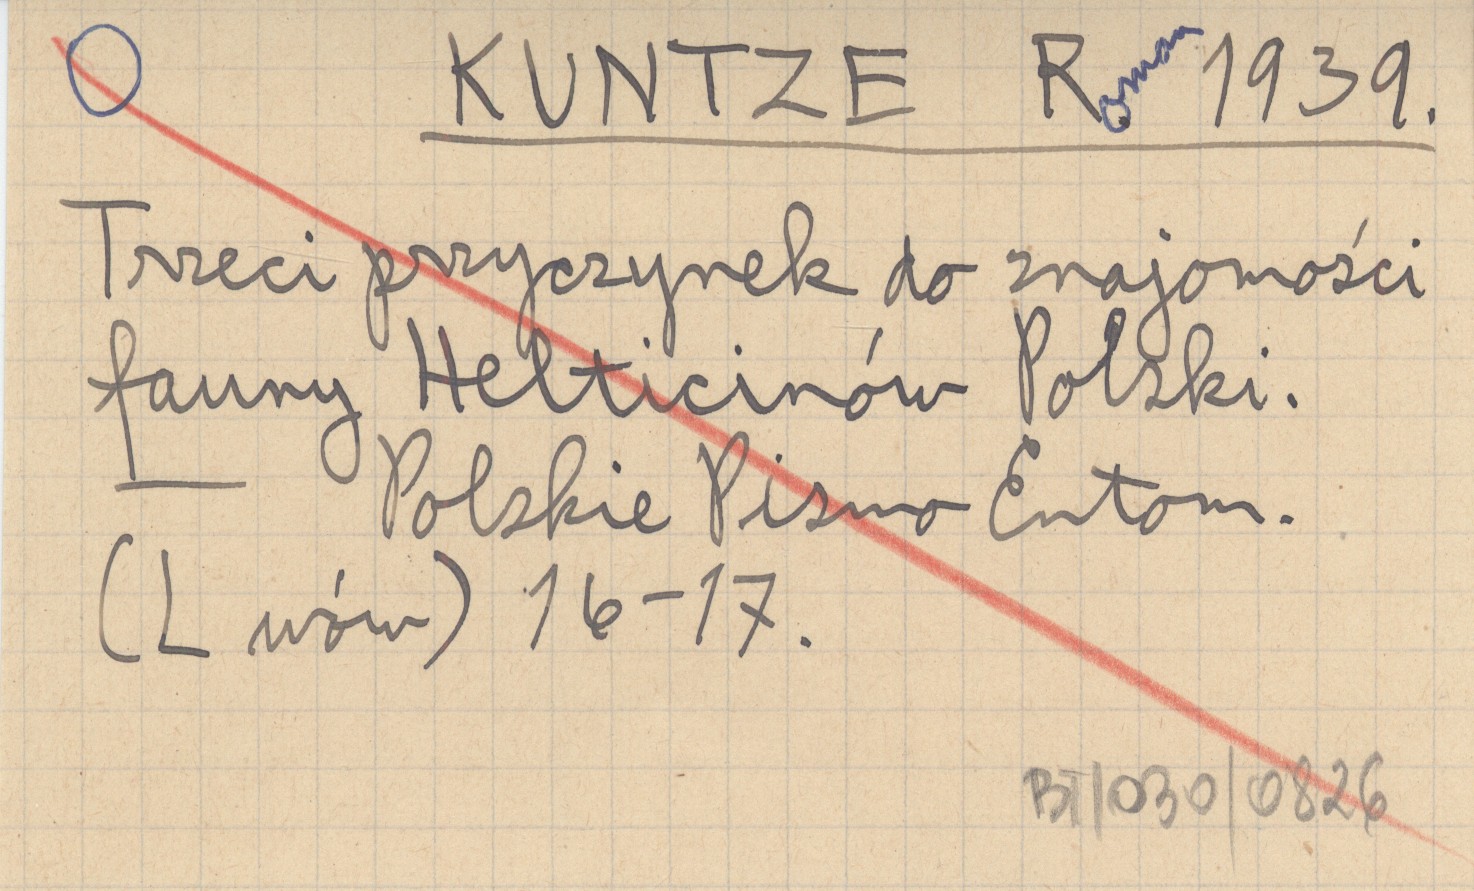 KUNTZE Roman 1939.
Trzeci przyczynek do znajomości
fauny Helticinów Polski.
Polskie Pismo Entom.
(Lwów) 16-17.
BI|030|0826